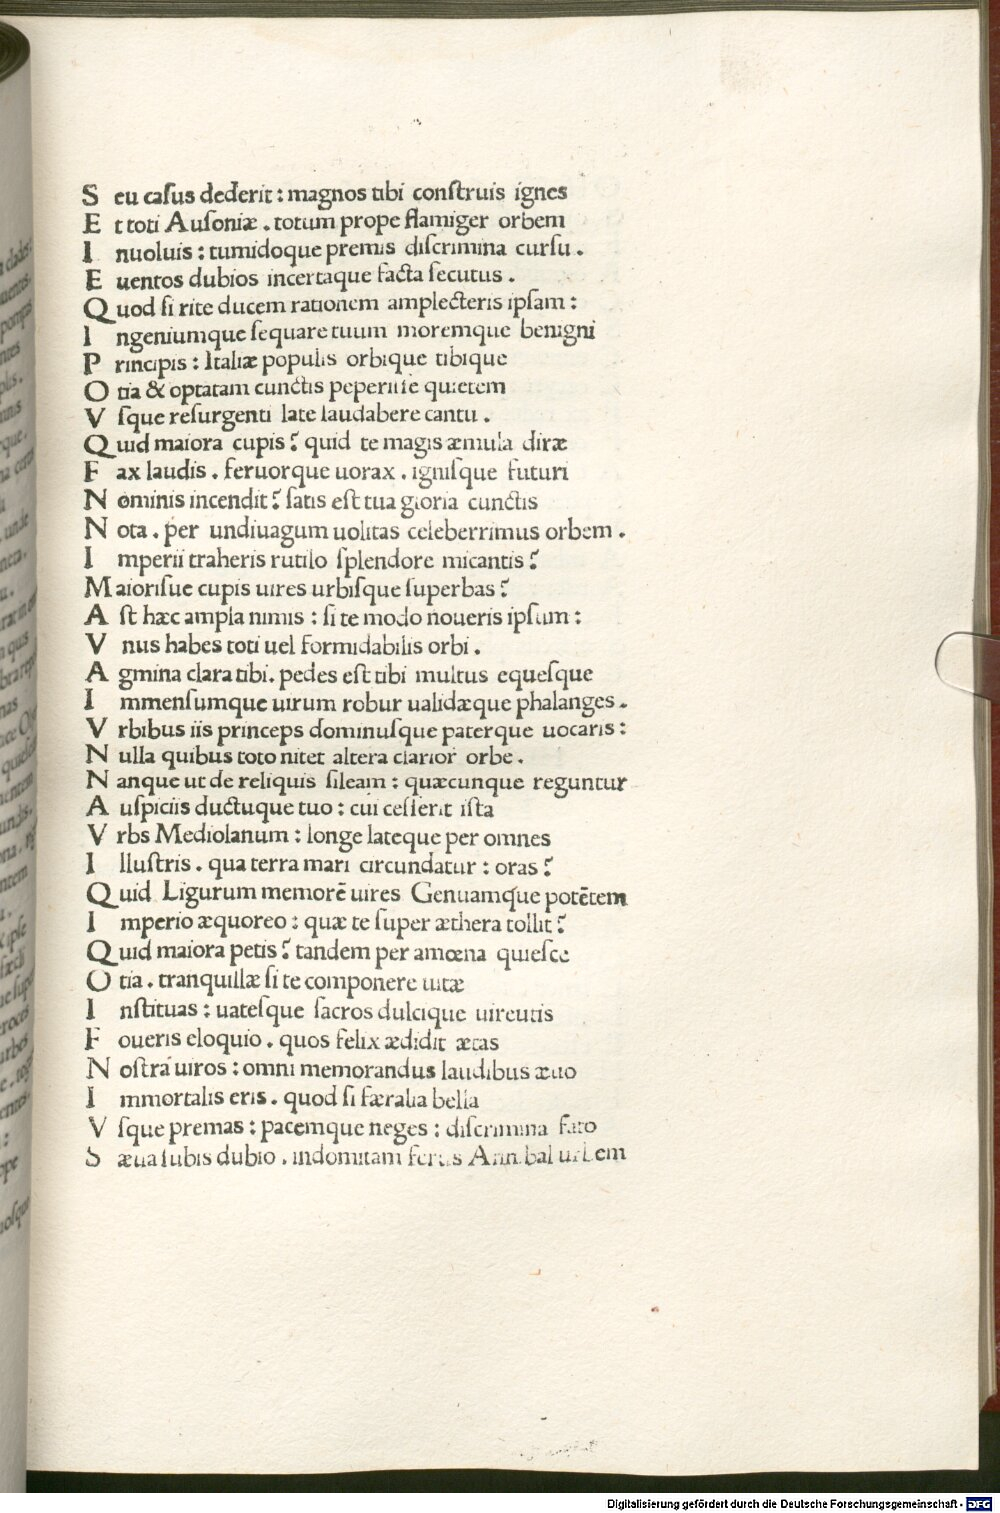 S eu caſus dederit : magnos tibi conſtruis ignes
E t toti Auſoniæ . totum prope flamiger orbem
I nuoluis : tumidoque premis diſcrimina curſu .
E uentos dubios incertaque facta ſecutus .
Q uod ſi rite ducem rationem amplecteris ipſam :
I ngeniumque ſequare tuum moremque benigni
P rincipis : Italiæ populis orbique tibique
O tia & optatam cunctis peperiſſe quietem
V ſque reſurgenti late laudabere cantu .
Q uid maiora cupis ? quid te magis æmula diræ
F ax laudis . feruorque uorax . igniſque futuri
N ominis incendit ? ſatis eſt tua gloria cunctis
N ota . per undiuagum uolitas celeberrimus orbem .
I mperii traheris rutilo ſplendore micantis ?
M aioriſue cupis uires urbiſque ſuperbas ?
A ſt hæc ampla nimis : ſi te modo noueris ipſum :
V nus habes toti uel formidabilis orbi .
A gmina clara tibi . pedes eſt tibi multus equeſque
I mmenſumque uirum robur ualidæque phalanges .
V rbibus iis princeps dominuſque paterque uocaris :
N ulla quibus toto nitet altera clarior orbe .
N anque ut de reliquis ſileam : quæcunque reguntur
A uſpiciis ductuque tuo : cui ceſſerit iſta
V rbs Mediolanum : longe lateque per omnes
I lluſtris . qua terra mari circundatur : oras ?
Q uid Ligurum memorē uires Genuamque potētem
I mperio æquoreo : quæ te ſuper æthera tollit ?
Q uid maiora petis ? tandem per amœna quieſce
O tia . tranquillæ ſi te componere uitæ
I nſtituas : uateſque ſacros dulcique uireutis
F oueris eloquio . quos felix ædidit ætas
N oſtra uiros : omni memorandus laudibus æuo
I mmortalis eris . quod ſi færalia bella
V ſque premas : pacemque neges : diſcrimina fato
S æua ſubis dubio . indomitam ferus Annibal urbem
Digitalisierung gefördert durch die Deutsche Forschungsgemeinschaft - DFG